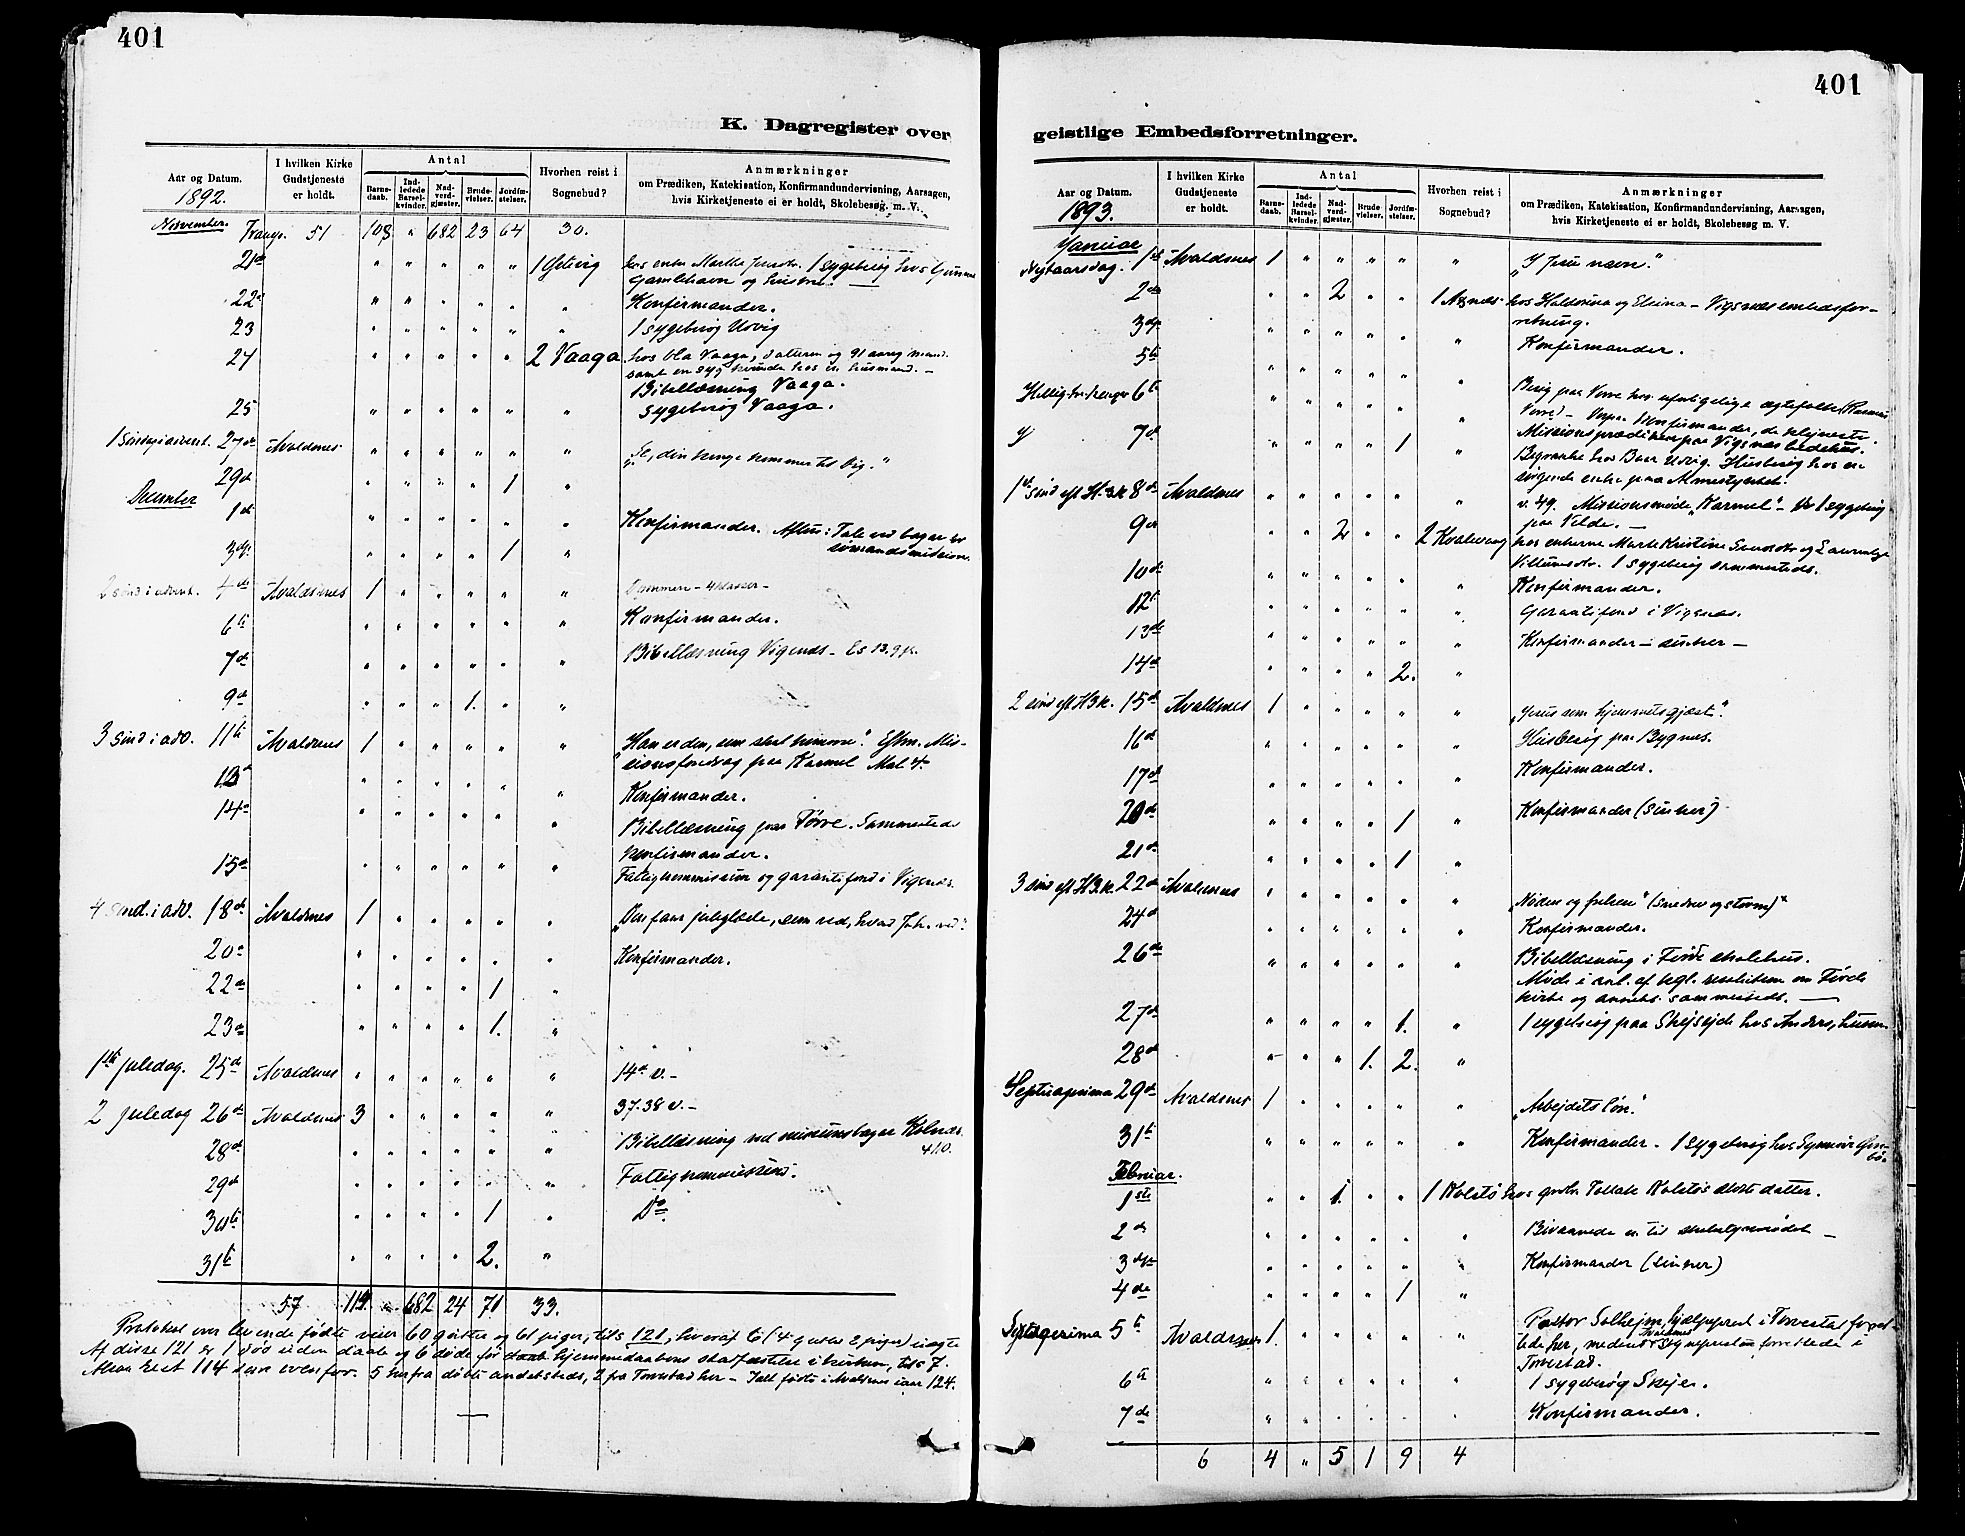 401
K. Dagregister over
Aar og Datum.
1892.
I hvilken Kirke
Gudstjeneste
er holdt.
Antal
Barne-
daab.
Ind-
ledede
Barsel-
kvinder.
Nad-
verd-
gjæster.
Brude-
vielser.
Jordfæ-
stelser.
Hvorhen reist i
Sognebud?
Anmærkninger
om Prædiken, Katekisation, Konfirmandundervisning, Aarsagen,
hvis Kirketjeneste ei er holdt, Skolebesøg, m. V.
November. Transp. 51 108 " 682 23 64 30.
21de " " " " " 1 hos enke Martha 1 sygebesøg hos
Gamlehavn og hustru.
22de " " " " " " Konfirmander.
23 " " " " " " 1 sygebesøg Utvig
24 " " " " " 2 Vaaga hos Ola Vaaga, datteren og 91 aarig mand
samt en syg kvinde hos en husmand. –
Bibellæsning Vaaga.
25 " " " " " " Sygebesøg Vaaga.
1 Søndag i advent. 27de Avaldsnes " " " " " " "Se, din konge kommer til dig."
29de " " " " 1 "
December
1ste " " " " " " Konfirmander. Aften: Tale ved bazar for
sømandsmission.
3die " " " " 1 "
2 sønd i advent. 4de Avaldsnes 1 " " " " " Dommen – 4 klasser –
6te " " " " " " Konfirmander.
7de " " " " " " Bibellæsning Vigsnes – Es 13.
9de " " " 1. " "
3 sønd i adv. 11te Avaldsnes 1 " " " " " "Han er den, som skal komme". Eftm. Mis-
sionsforedrag paa Karmel Mal 4.
13de " " " " " " Konfirmander.
14de " " " " " " Bibellæsning paa Tørre. Sammesteds
konfirmander.
15de " " " " " " Fattigkommission og garantifond i Vigsnes.
4 sønd. i adv. 18de Avaldsnes 1 " " " " " "Den faar juleglæde, som ved, hvad Joh. ved".
20de " " " " " " Konfirmander.
22de " " " " 1 "
23de " " " " 1. "
1ste juledag. 25de Avaldsnes " " " " " " 14de v. –
2 juledag 26de Avaldsnes 3 " " " " " 37.38 v. –
28de " " " " " " Bibellæsning ved missionsbazar Kolnes
4/10.
29de " " " " " " Fattigkommission.
30te " " " " 1 " Do.
31te " " " " 2. "
57 119. " 682 24 71 33.
Protokol over levende fødte viser 60 gutter og 61 piger, tils 121, hvoraf 6 (4 gutter 2 piger) uægte
Af disse 121 er 1 død uden daab og 6 døde før hjemmedaabens stadfæstelse i kirken, tils 7.
Altsaa rest 114 som ovenfor. 5 herfra døbte andetsteds, 2 fra Torvestad her – Ialt fødte i Avaldsnes iaar 124.
401
geistlige Embedsforretninger.
Aar og Datum.
1893.
I hvilken Kirke
Gudstjeneste
er holdt.
Antal
Barne-
daab.
Ind-
ledede
Barsel-
kvinder.
Nad-
verd-
gjæster.
Brude
vielser.
Jordfæ-
stelser.
Hvorhen reist i
Sognebud?
Anmærkninger
om Prædiken, Katekisation, Konfirmandundervisning, Aarsagen,
hvis Kirketjeneste ei er holdt, Skolebesøg m. V.
Januar
Nytaarsdag. 1ste Avaldsnes 1 " " " " " "I Jesu navn."
2den " " 2 " " 1 hos og – Vigsnes embedsfor-
retning.
3die " " " " " " Konfirmander.
5te " " " " " "
Hellig tre konger 6te " " " " " " Besøg paa Vorre hos ægtefolk (Rasmus
Vorre) – Konfirmander, de klejneste.
Missionsprædiken paa Vigsnes bedehus.
7de " " " " 1 " Begravelse hos Utvig. Husbesøg hos en
enke paa
1ste sønd eft H.3K 8de Avaldsnes " " " " " " v. 49. Missionsmøde "Karmel" – 1 sygebesøg
paa Velde. –
9de " " 2 " " 2 hos enkerne Marte Kristine og
1 sygebesøg sammesteds.
10de " " " " " " Konfirmander.
12te " " " " " " Garantifond i Vigsnes.
13de " " " " " " Konfirmander – sinker –
14de " " " " 2. "
2 sønd eft H3k. 15de Avaldsnes 1 " " " " " "Jesus som hjemmets gjæst".
16de " " " " " " Husbesøg paa Bygnes.
17de " " " " " " Konfirmander.
20de " " " " 1 " Konfirmander (sinker)
21de " " " " 1 "
3 sønd eft H3k. 22de Avaldsnes " " " " " " "Nøden og frelsen" ( og storm)"
24de " " " " " " Konfirmander.
26de " " " " " " Bibellæsning i Førde skolehus.
Møde i anl. af kgl. resolution om Førde
kirke og sammesteds. –
27de " " " " 1. " 1 sygebesøg paa Skejsejde hos Anders,
28de " " " 1. 2. "
Septuagesima 29de Avaldsnes 1 " " " " " "Arbejdets løn."
31te " " " " " " Konfirmander. 1 sygebesøg hos
Februar.
1ste " " 1. " " 1 Kolstø hos Tollak Kolstøs datter.
2de " " " " " " Bivaanede
3die " " " " " " Konfirmander (sinker)
4de " " " " 1 "
5te Avaldsnes 1. " " " " " Pastor Solheim, hjælpeprest i Torvestad
her, medens Avaldsnes Sogneprest forrettede i
Torvestad.
6te " " " " " " 1 sygebesøg Skejer.
7de " " " " " " Konfirmander.
6 4 " 5 1 9 4